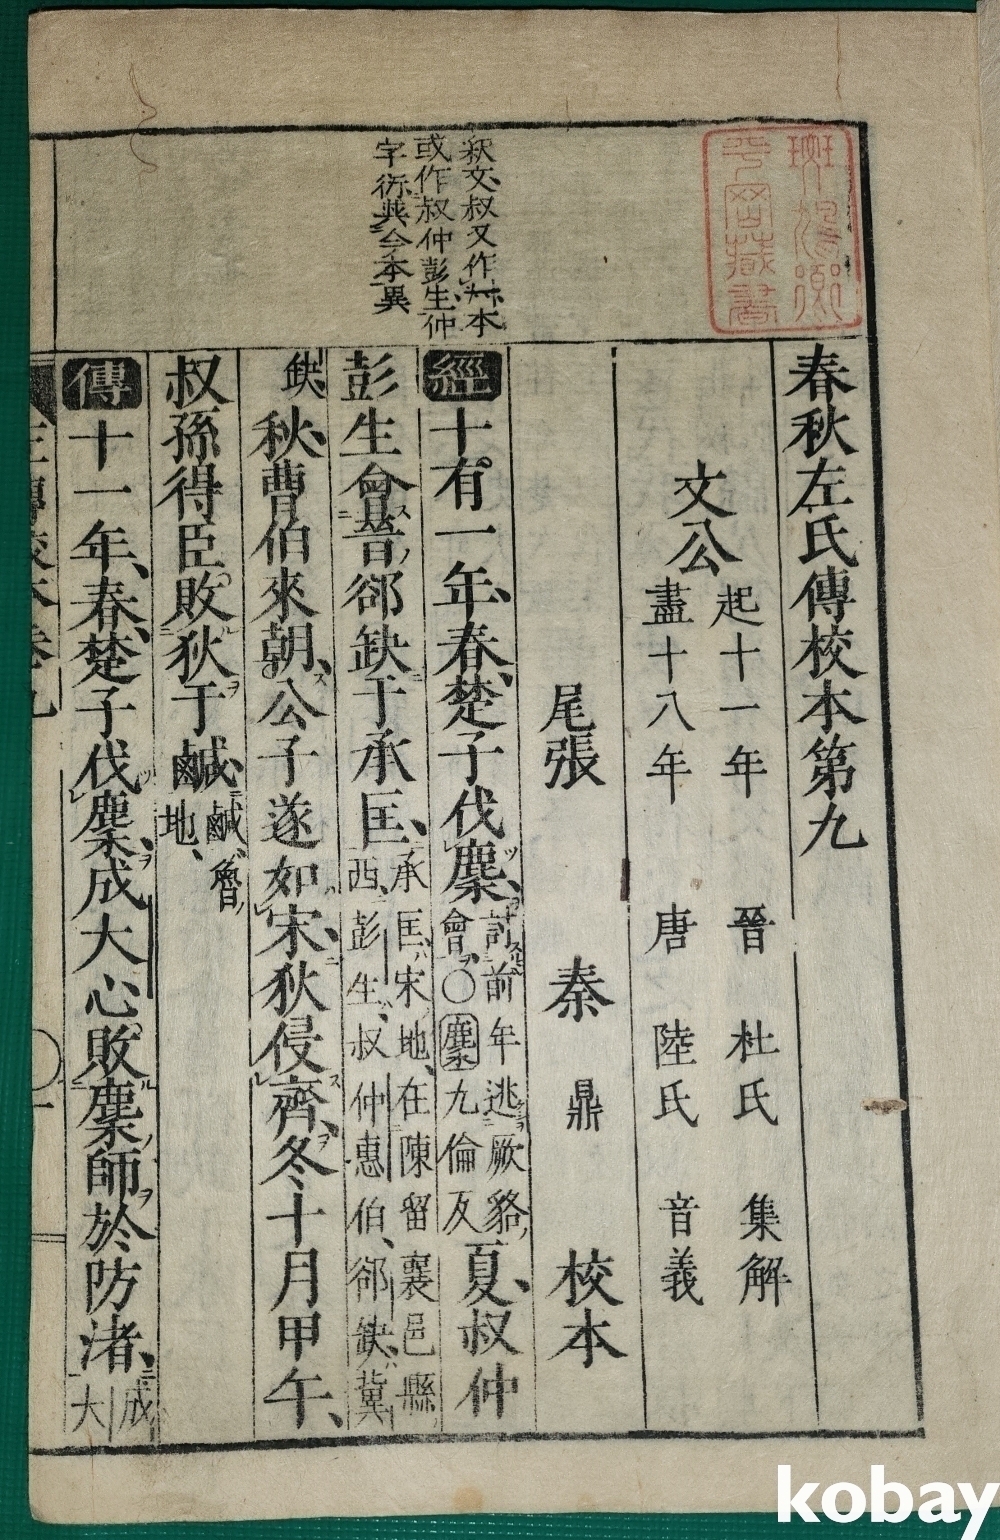 春秋左氏傳校本第九
文公
起十一年
盡十八年
晉 杜氏 集解
唐 陸氏 音義
尾張 秦鼎 校本
釈文叔又作尗本
或作叔仲彭生仲
字衍與今本異
經十有一年春楚子伐麇討前年逃厥貉會〇麇九倫反夏叔仲
彭生會晉郤缺于承匡承匡宋地在陳留襄邑縣西彭生叔仲惠伯郤缺冀
缺秋曹伯來朝公子遂如宋狄侵齊冬十月甲午
叔孫得臣敗狄于鹹鹹魯地
傳十一年春楚子伐麇成大心敗麇師於防渚成大
kobay